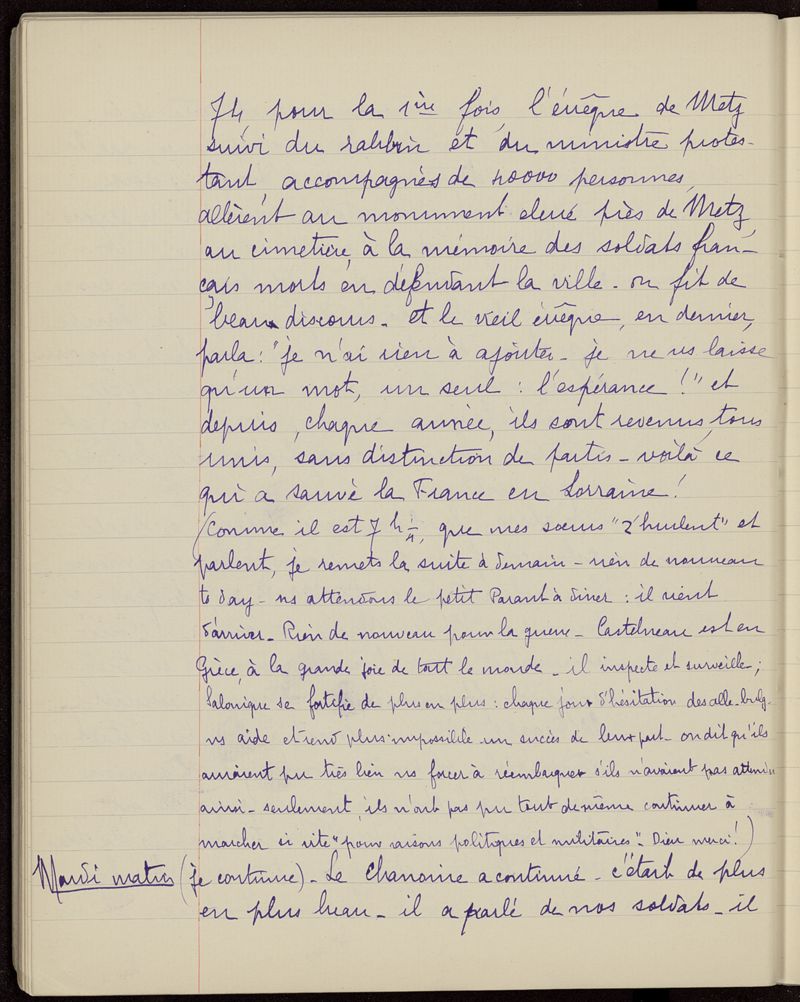 74, pour la 1ère fois, l'évêque de Metz
suivi du rabbin et du ministre protes-
tant, accompagnés de 40000 personnes,
allèrent au monument elevé près de Metz,
au cimetière, à la mémoire des soldats fran-
çais morts en défendant la ville - on fit de
beau discours - et le vieil évêque, en dernier,
parla : "je n'ai rien à ajouter - je ne vs laisse
qu'un mot, un seul : l'espérance !" et
depuis, chaque année, ils sont revenus, tous
unis, sans distinction de partis - voilà ce
qui a sauvé la France en Lorraine !
(Comme il est 7h 1/4, que mes sœurs "z'hurlent" et
parlent, je remets la suite à demain - rien de nouveau
to day - ns attendons le petit Parant à dîner : il vient
d'arriver - Rien de nouveau pour la guerre - Castelneau est en
Grèce, à la grande joie de tout le monde - il inspecte et surveille ;
Salonique se fortifie de plus en plus : chaque jour d'hésitation des alle-bulg-
ns aide et rend plus impossible un succès de leur part - on dit qu'ils
auraient pu très bien ns forcer à réembarquer s'ils n'avaient pas attendu
ainsi - seulement, ils n'ont pas pu tout de même continuer à
marcher si vite "pour raisons politiques et militaires" - Dieu merci !)
Mardi matin (je continue) - Le Chanoine a continué - c'était de plus
en plus beau - il a parlé de nos soldats - il